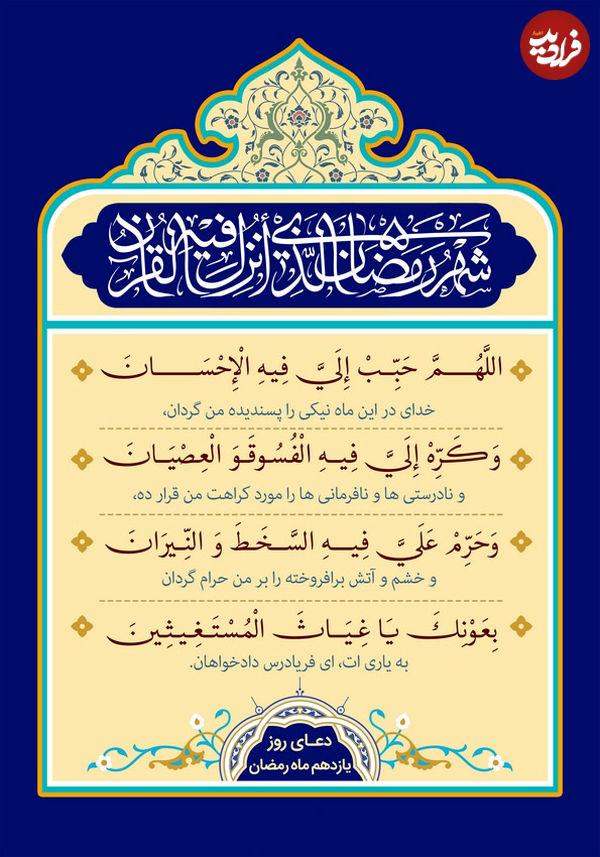 فرادید
اخبار
شَهْرُ رَمَضَانَ الَّذِي أُنْزِلَ فِيهِ الْقُرْآنُ
اللَّهُمَّ حَبِّبْ إِلَيَّ فِيهِ الْإِحْسَانَ
خدای در این ماه نیکی را پسندیده من گردان،
وَكَرِّهْ إِلَيَّ فِيهِ الْفُسُوقَوَ الْعِصْيَانَ
و نادرستی ها و نافرمانی ها را مورد کراهت من قرار ده،
وَحَرِّمْ عَلَيَّ فِيهِ السَّخَطَ وَ النِّيرَانَ
و خشم و آتش برافروخته را بر من حرام گردان
بِعَوْنِكَ يَا غِيَاثَ الْمُسْتَغِيثِينَ
به یاری ات، ای فریادرس دادخواهان.
دعای روز
یازدهم ماه رمضان